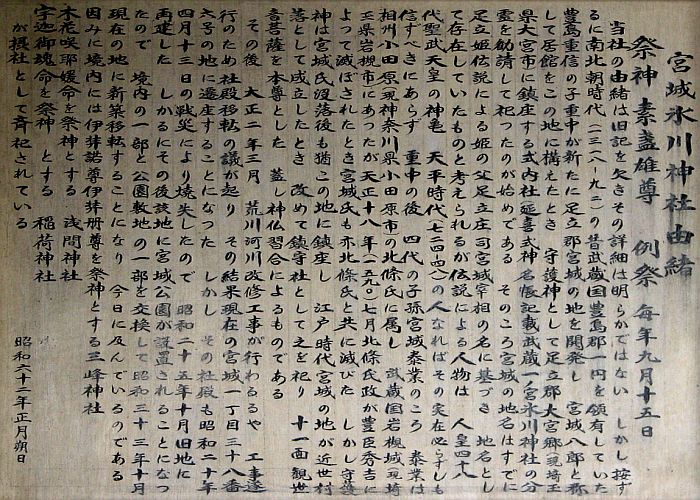 宮城氷川神社由緒
祭神 素盞雄尊 例祭 毎年九月十五日
当社の由緒は旧記を欠きその詳細は明らかではない しかし 按ず
るに南北朝時代(一三三八-九二)の昔武蔵国豊島郡一円を領有していた
豊島重信の子重中が新たに足立郡宮城の地を開発し 宮城八郎と称
して居館をこの地に構えたとき 守護神として足立郡大宮郷(現埼玉
県大宮市)に鎮座する式内社延喜式神名帳記載武蔵一ノ宮氷川神社の分
霊を勧請して祀ったのが始めである そのころ宮城の地名はすでに
足立姫伝説による姫の父足立庄司宮城宰相の名に基づき 地名とし
て存在していたものと考えられるが伝説による人物は 人皇四十八
代聖武天皇の神亀 天平時代(七二四-四八)の人なればその実在必らずしも
信ずべきにあらず 重中の後 四代の子孫宮城泰業のころ 泰業は
相州小田原現神奈川県小田原市の北條氏に属し 武蔵国岩槻城(現埼
玉県岩槻市にあったが天正十八年(一五九〇)七月北條氏政が豊臣秀吉に
よって滅ぼされたとき宮城氏も亦北條氏と共に滅びた しかし守護
神は宮城氏没落後も猶この地に鎮座し 江戸時代宮城の地が近世村
落として成立したとき 改めて鎮守社として之を祀り 十一面観世
音菩薩を本尊とした 蓋し神仏習合によるものである
その後 大正二年三月 荒川河川改修工事が行わるるや 工事遂
行のため社殿移転の議が起り その結果現在の宮城一丁目三十八番
六号の地に遷座することになった しかし その社殿も昭和二十年
四月十三日の戦災により焼失したので 昭和二十五年十月旧地に
再建した しかるにその後該地に宮城公園が設置されることになっ
たので 境内の一部と公園敷地の一部を交換して昭和三十三年十月
現在の地に新築移転することになり 今日に及んでいるのである
因みに境内には伊弉諾尊伊弉册尊を祭神とする三峰神社
木花咲耶媛命を祭神とする 浅間神社
宇迦御魂命を祭神 とする 稲荷神社
が摂社として斉祀されている
昭和六十二年正月朔日